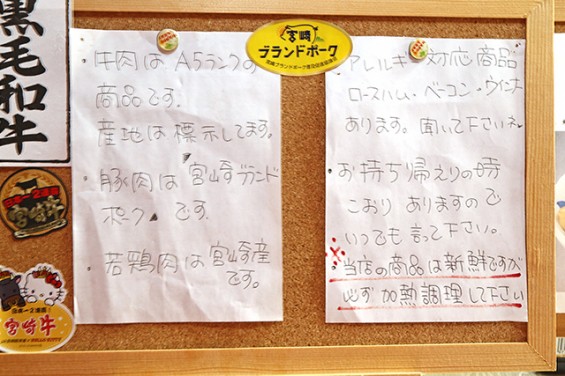 黒毛和牛
日本一2連覇
宮崎牛
日本一2連覇!
宮崎牛
・牛肉は A5ランクの
商品です.
産地は 標示してます。
・豚肉は 宮崎ブランド
ポーク です.
・若鶏肉は宮崎産
です。
宮崎
ブランドポーク
・アレルギー対応商品
ロースハム・ベーコン・ウインナ
あります。聞いて下さいネ
・お持ち帰えりの時
こおり ありますので
いつでも 言って下さい。
※当店の商品は新鮮ですが
必ず 加熱調理して下さい